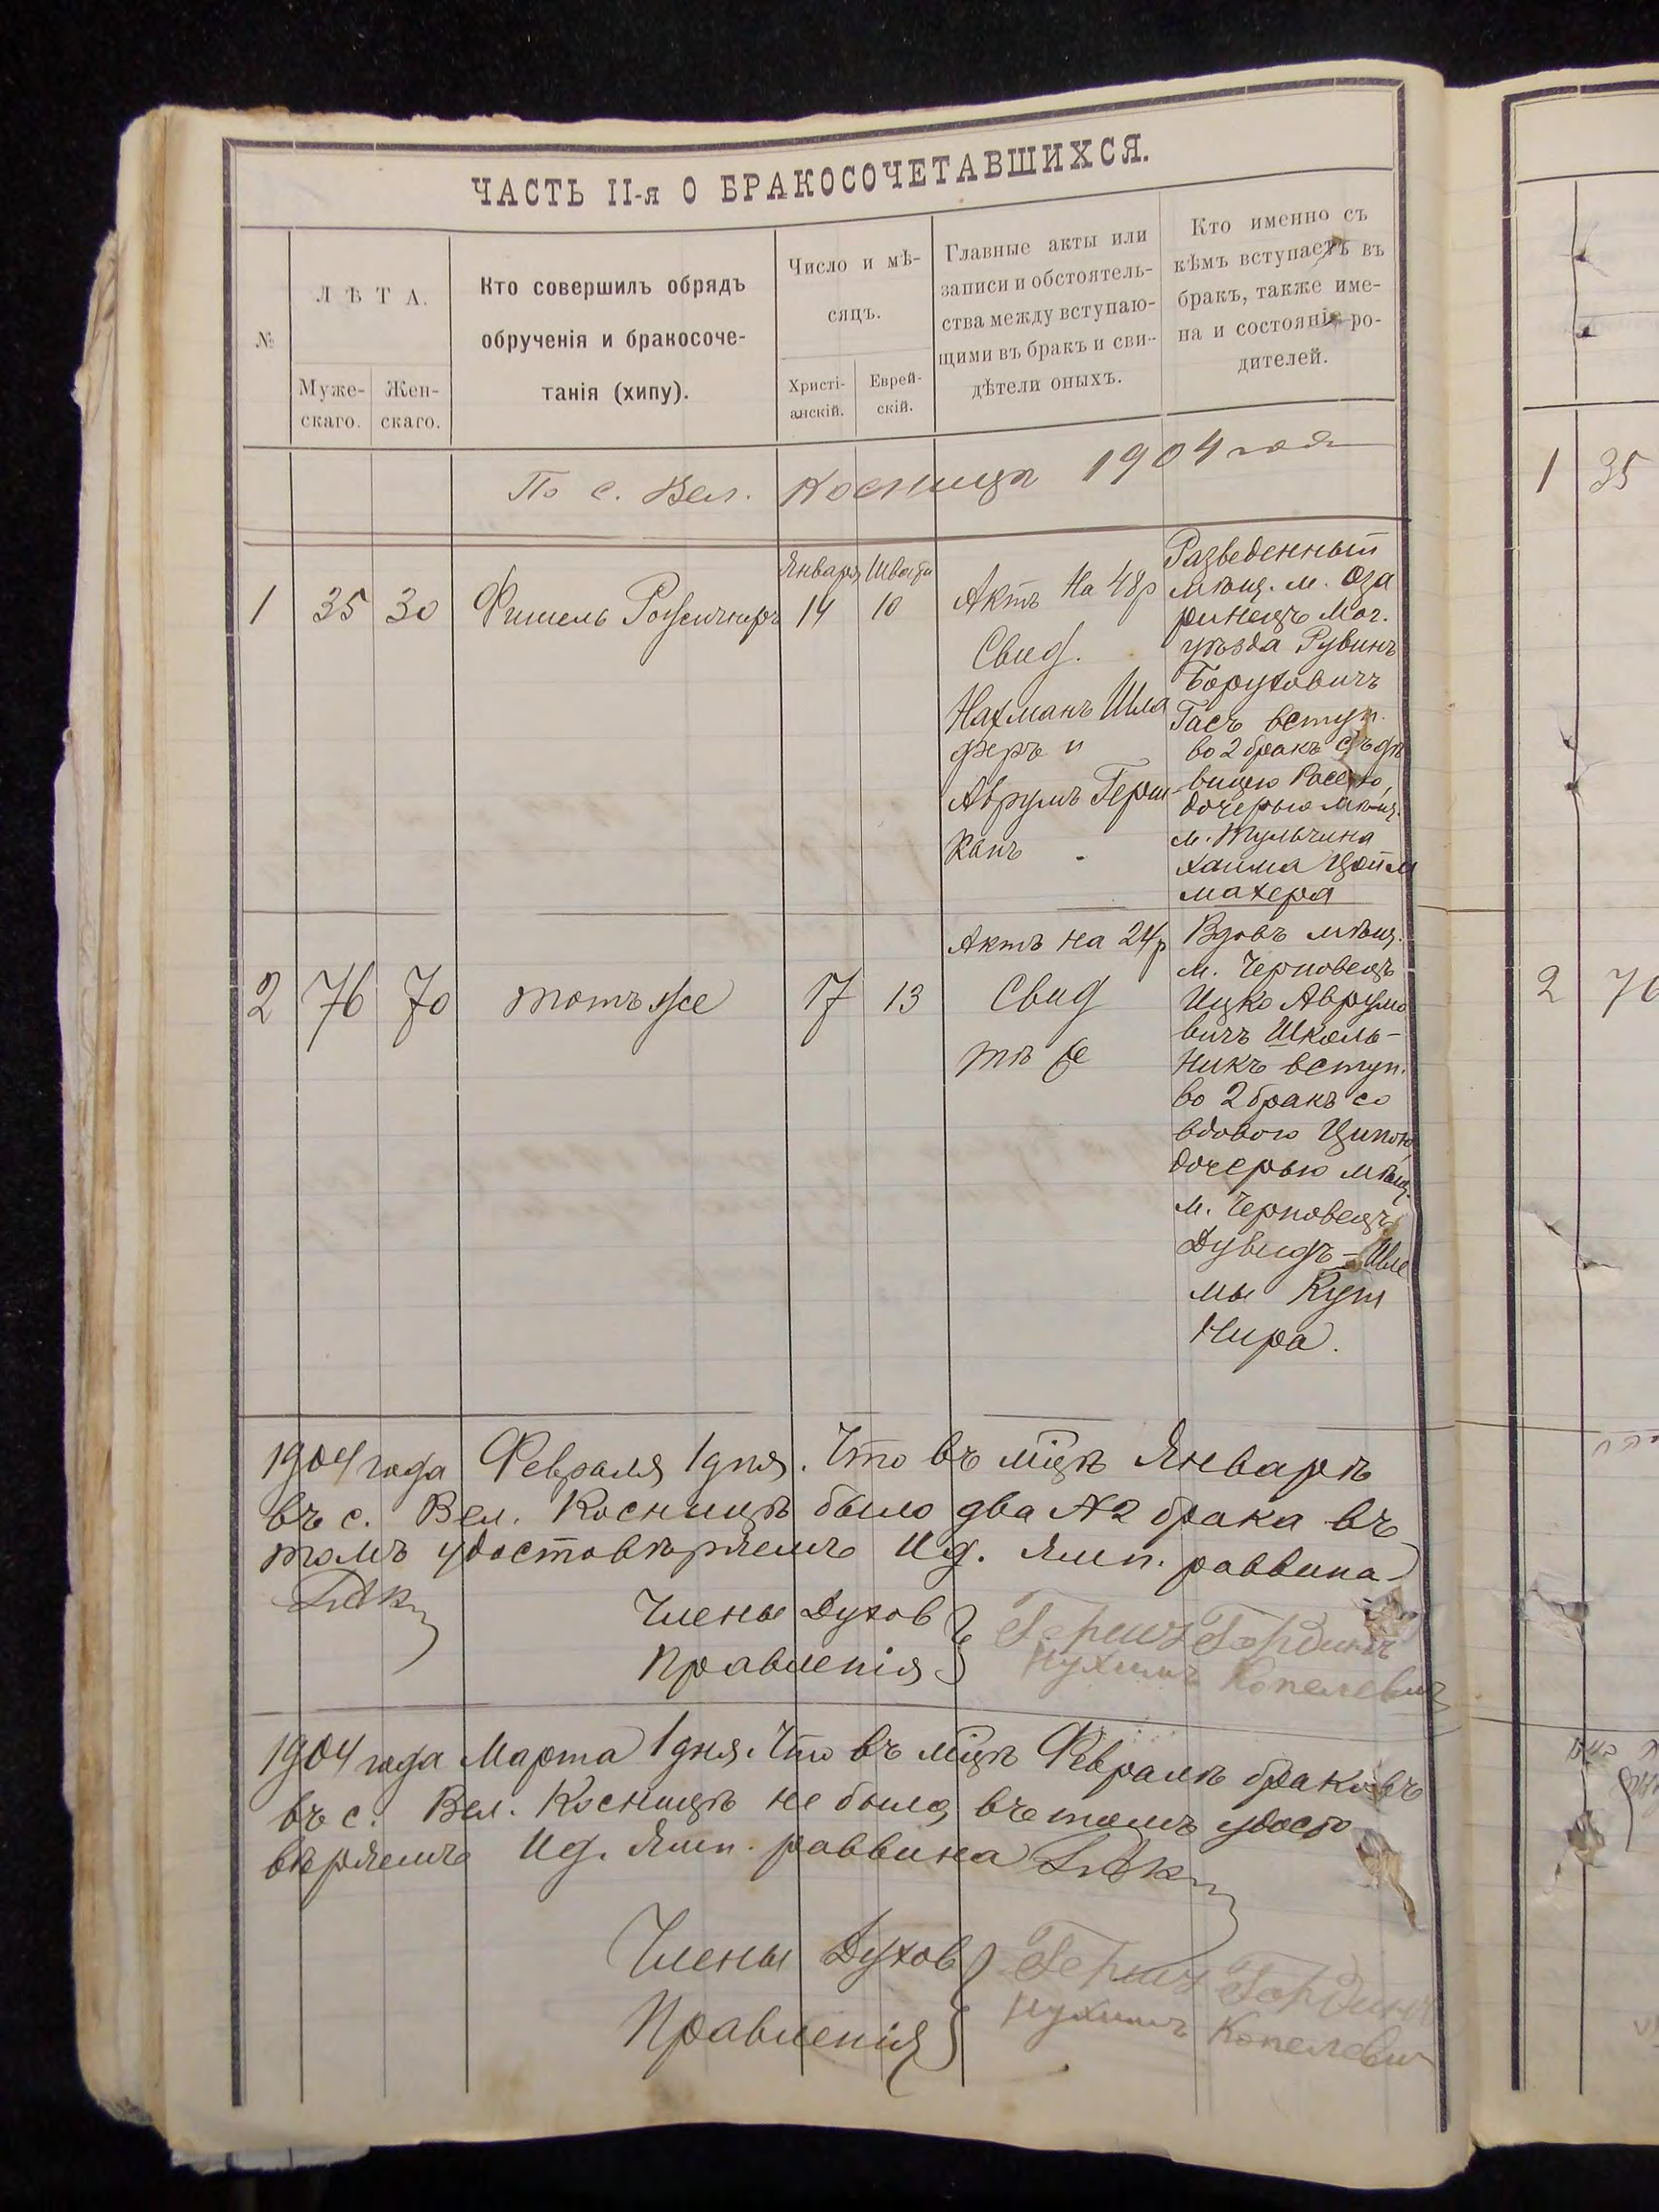 ЧАСТЬ II-я О БРАКОСОЧЕТАВШИХСЯ.
№
ЛѢТА.
Муже-
скаго.
Жен-
скаго.
Кто совершилъ обрядъ
обрученія и бракосоче-
танія (хипу).
Число и мѣ-
сяцъ.
Христі-
анскій.
Еврей-
скій.
Главные акты или
записи и обстоятель-
ства между вступаю-
щими въ бракъ и сви-
дѣтели оныхъ.
Кто именно съ
кѣмъ вступаетъ въ
бракъ, также име-
на и состояніе ро-
дителей.
По с. Вел. Косница 1904 года
1
35
30
Фишель
Января
14
Швата
10
Актъ На 48р
Свид.
Нахманъ Шла
феръ и
Аврумъ Герш
канъ
Разведенный
мѣщ. м. Оза
ринецъ Мог.
уѣзда Рувинъ
Боруховичъ
Гасъ вступ.
во 2 бракъ съ дѣ
вицею Расею,
дочерью мѣщ.
м. Тульчина
Хаима Цойм
махера
2
76
70
тотъ же
17
13
Актъ на 24р
Свид
тѣ же
Вдовъ мѣщ.
м. Черновецъ
Ицко Аврумо
вичъ Школь-
никъ вступ.
во 2 бракъ со
вдовою Ципою,
дочерью мѣщ.
м. Черновецъ
Дувидъ-Шле
мы Куш
нира.
1904 года Февраля 1 дня. Что въ мцѣ Январѣ
въ с. Вел. Косницѣ было два №2 брака въ
томъ удостовѣряемъ Ид. Ямп. раввина
Члены Духов
Правленія
Гершъ Гординъ
Нухимъ Копелевич
1904 года Марта 1 дня. Что въ мцѣ Февралѣ браковъ
въ с. Вел. Косницѣ не было, въ томъ удосто
вѣряемъ Ид. Ямп. раввина
Члены Духов
Правленія
Гершъ Гординъ
Нухимъ Копелевич
1
35
2